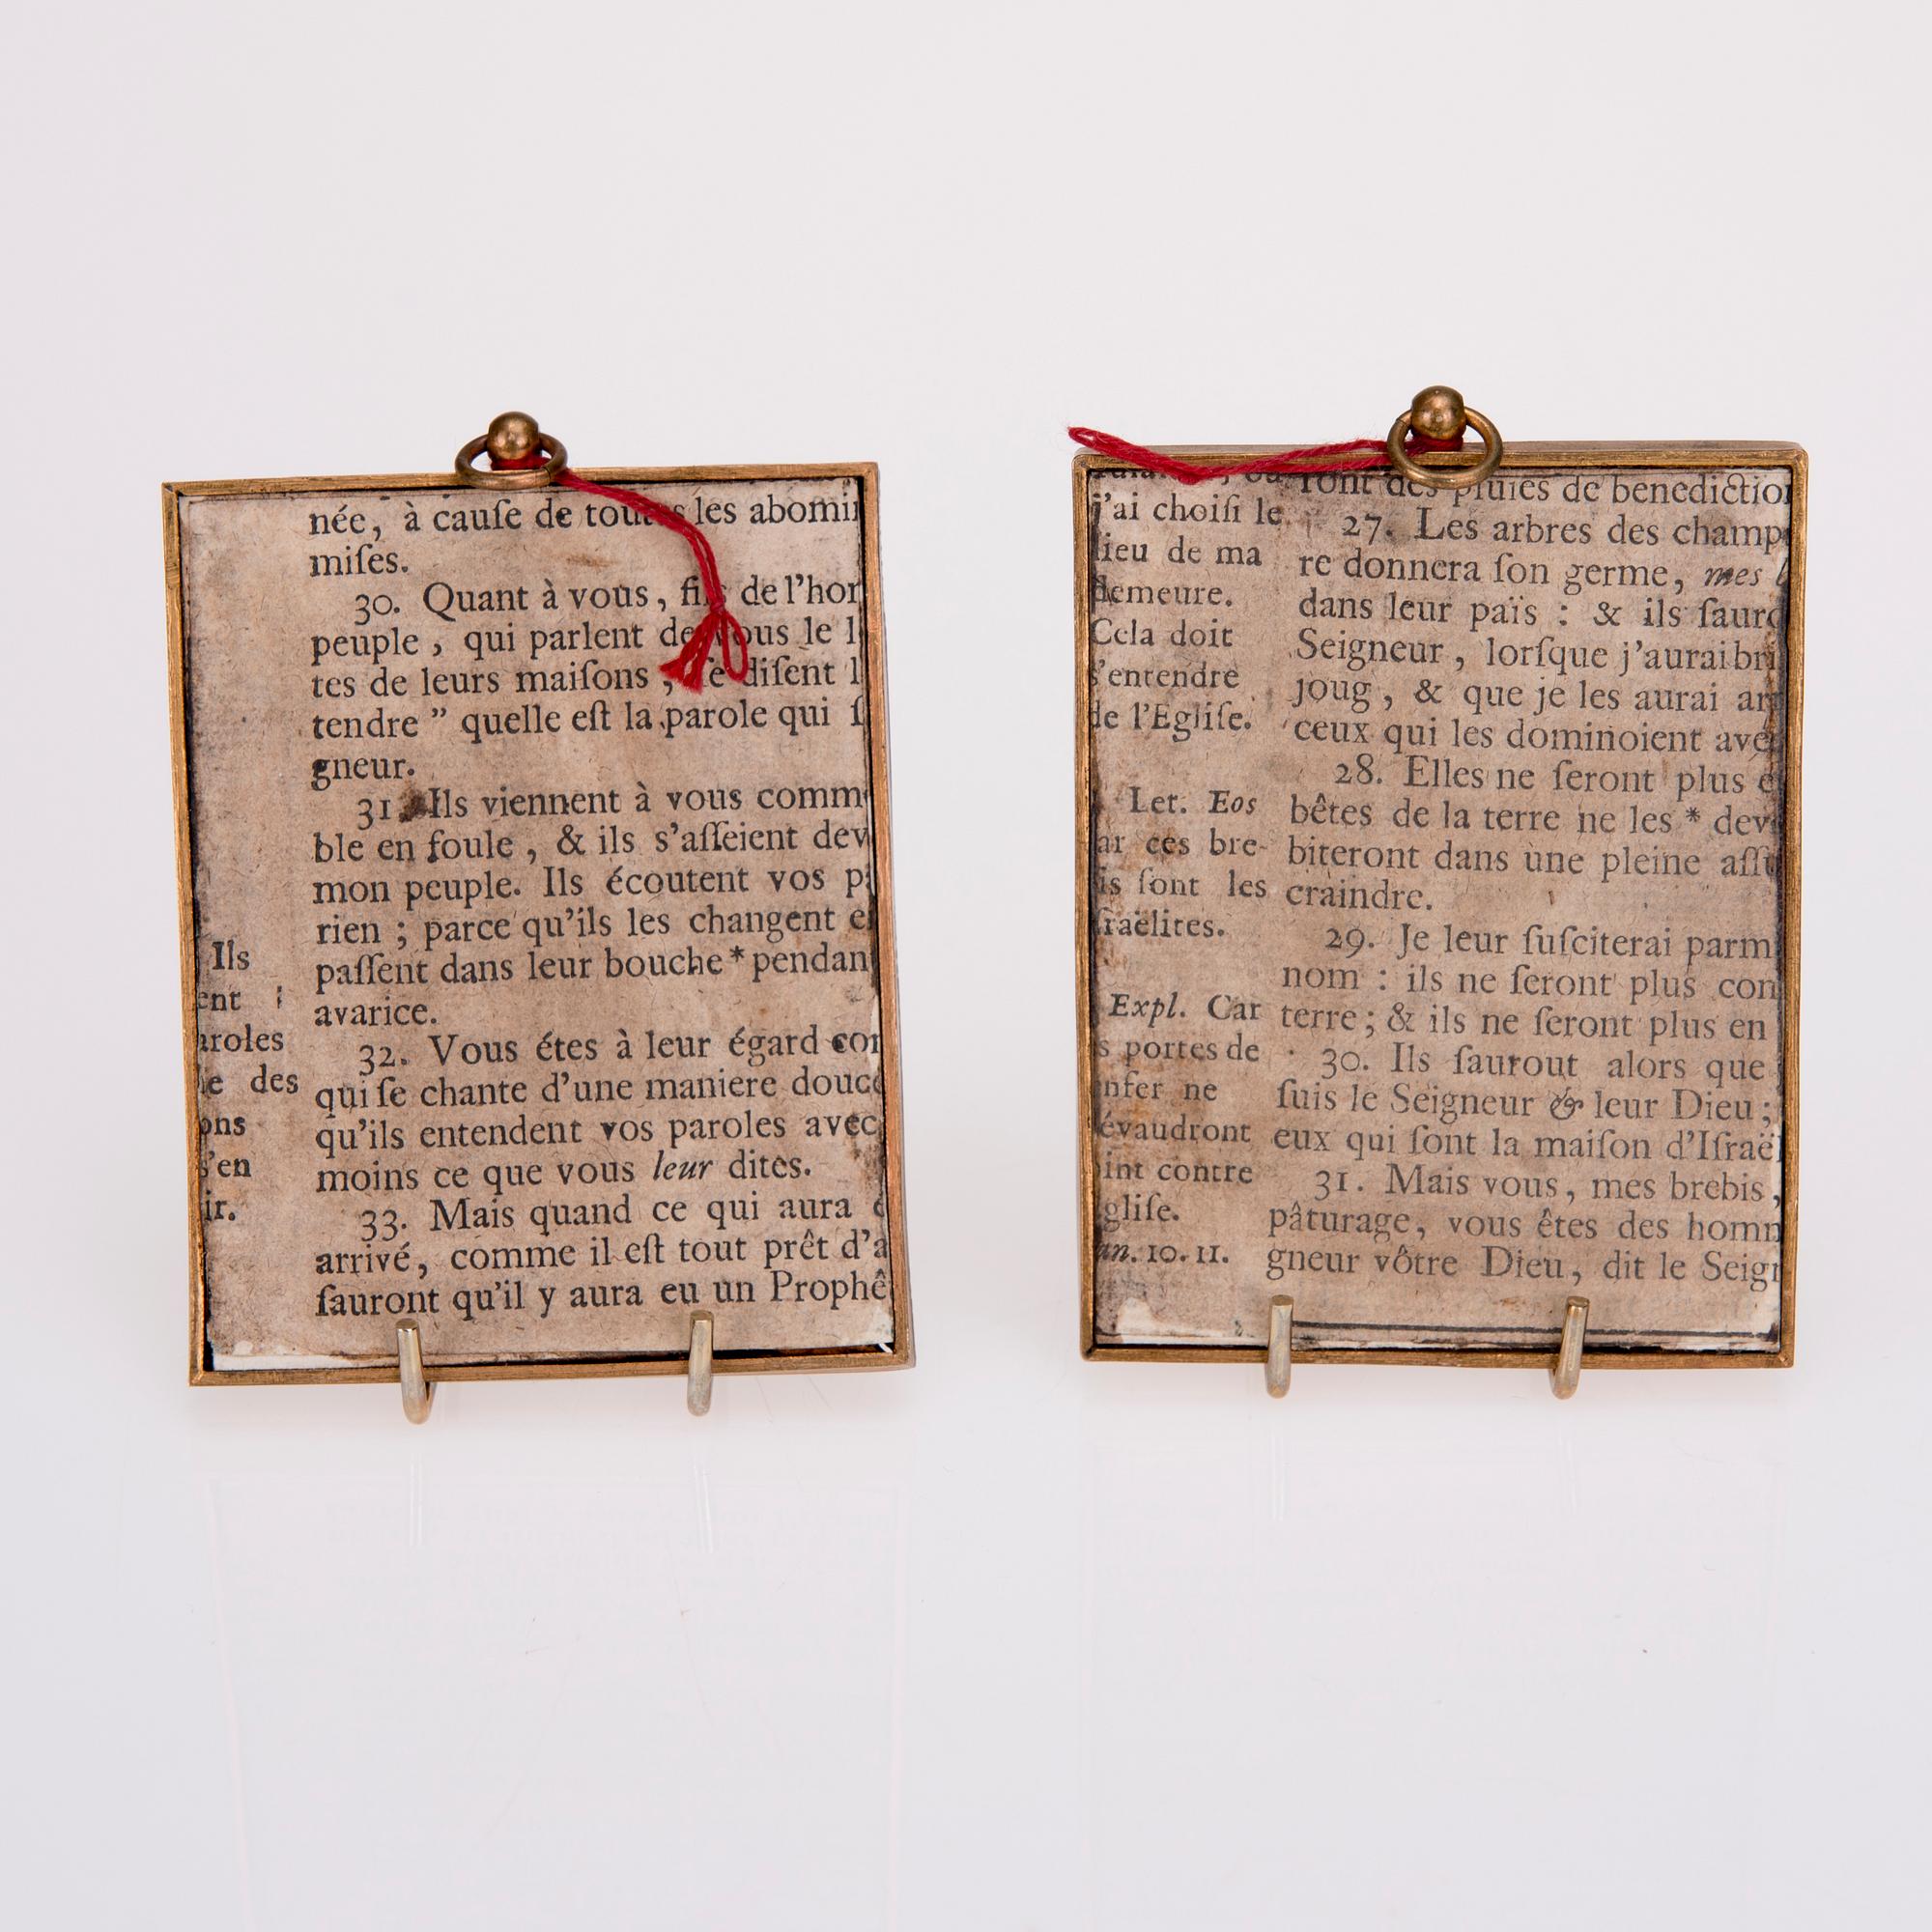 née, à cauſe de toutes les abomi
miſes.
30. Quant à vous, fils de l'hor
peuple, qui parlent de vous le l
tes de leurs maiſons, ſe diſent l
tendre ” quelle eſt la parole qui ſ
gneur.
31. Ils viennent à vous comm
ble en foule, & ils s'aſſeient dev
mon peuple. Ils écoutent vos p
rien ; parce qu'ils les changent e
paſſent dans leur bouche * pendan
avarice.
32. Vous étes à leur égard con
qui ſe chante d'une maniere douce
qu'ils entendent vos paroles avec
moins ce que vous leur dites.
33. Mais quand ce qui aura
arrivé, comme il eſt tout prêt d'a
ſauront qu'il y aura eu un Prophê
Ils
ent
aroles
le des
ons
s'en
ir.
j'ai choiſi le
lieu de ma
demeure.
Cela doit
s'entendre
de l'Egliſe.
Let. Eos
ar ces bre-
is ſont les
ſraëlites.
Expl. Car
s portes de
nfer ne
évaudront
int contre
gliſe.
an. 10. 11.
ront des pluies de benediction
27. Les arbres des champ
re donnera ſon germe, mes
dans leur païs : & ils ſauro
Seigneur, lorſque j'aurai bri
joug, & que je les aurai ar
ceux qui les dominoient ave
28. Elles ne ſeront plus e
bêtes de la terre ne les * dev
biteront dans une pleine aſſu
craindre.
29. Je leur ſuſciterai parm
nom : ils ne ſeront plus con
terre ; & ils ne ſeront plus en
30. Ils ſaurout alors que
ſuis le Seigneur & leur Dieu ;
eux qui ſont la maiſon d'Iſraël
31. Mais vous, mes brebis,
pâturage, vous êtes des homm
gneur vôtre Dieu, dit le Seign